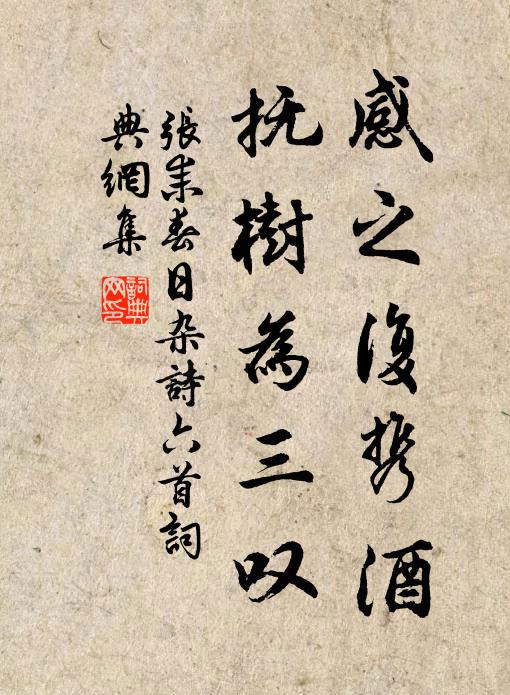 感之復携酒
抚樹為三叹
張耒春日杂詩六首詞
典網集
詞典网印